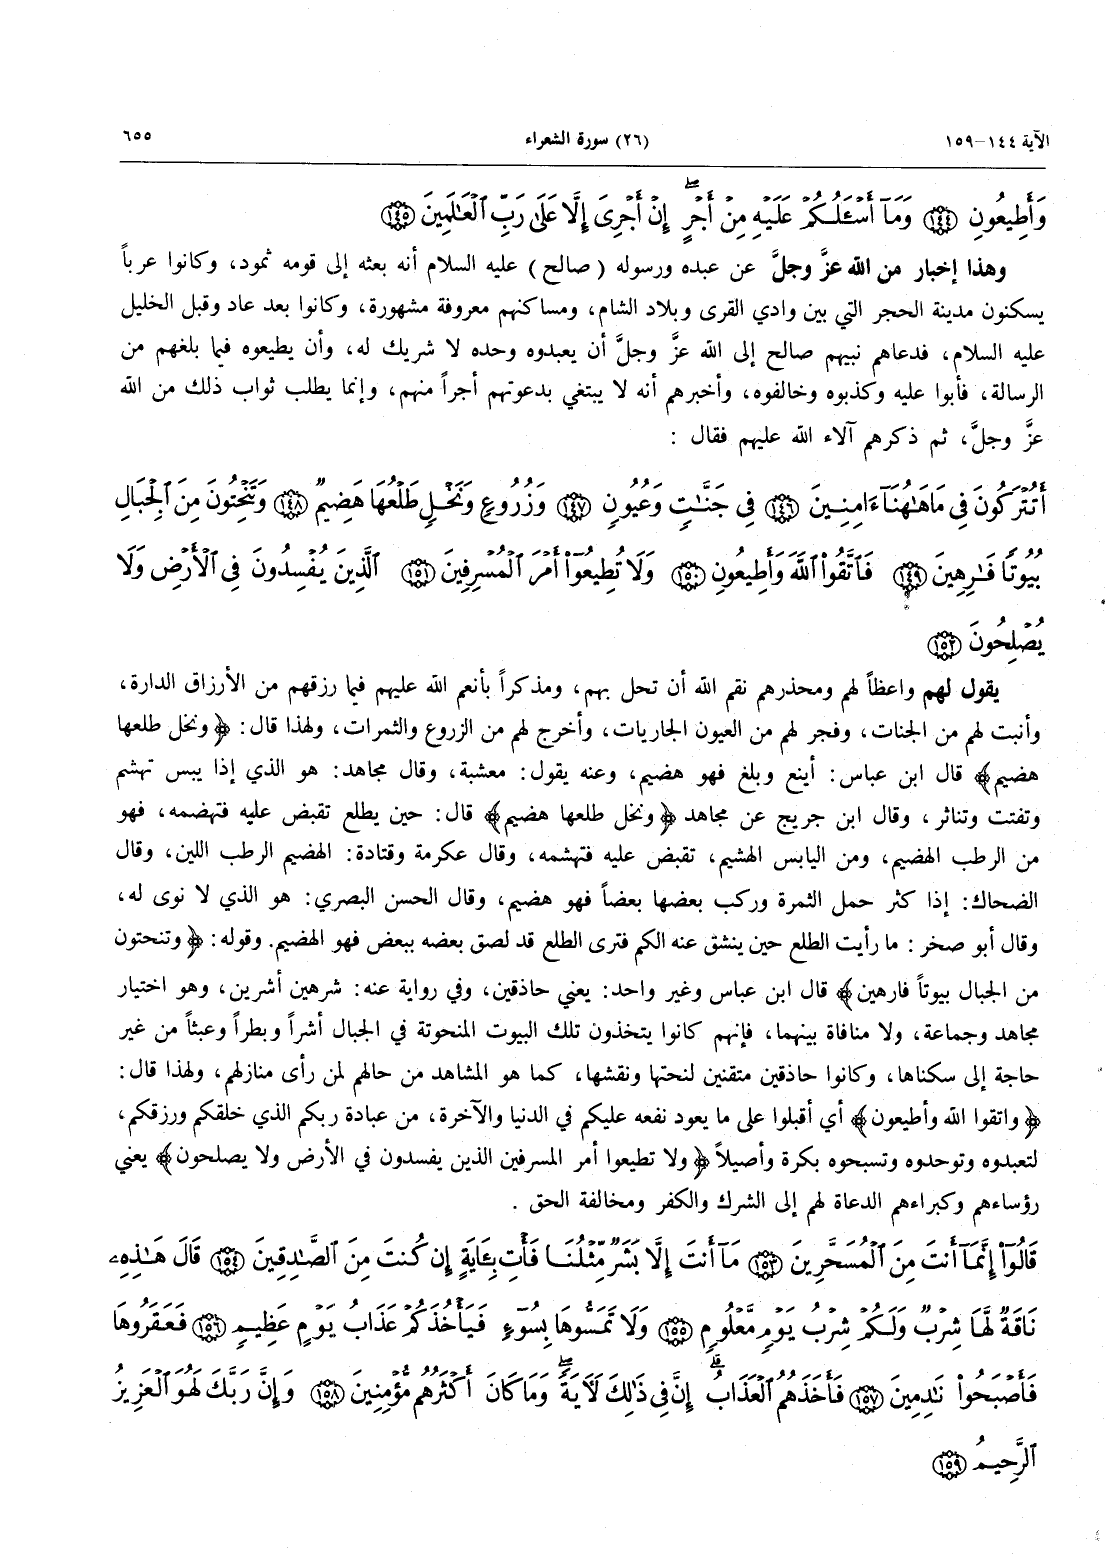 الآية ١٤٤-١٥٩ (٢٦) سورة الشعراء ٦٥٥
وَأَطِيعُونِ ﴿١٤٤﴾ وَمَآ أَسْـَٔلُكُمْ عَلَيْهِ مِنْ أَجْرٍ ۖ إِنْ أَجْرِىَ إِلَّا عَلَىٰ رَبِّ ٱلْعَـٰلَمِينَ ﴿١٤٥﴾
وهذا إخبار من الله عزَّ وجلَّ عن عبده ورسوله (صالح) عليه السلام أنه بعثه إلى قومه ثمود، وكانوا عرباً
يسكنون مدينة الحجر التي بين وادي القرى وبلاد الشام، ومساكنهم معروفة مشهورة، وكانوا بعد عاد وقبل الخليل
عليه السلام، فدعاهم نبيهم صالح إلى الله عزَّ وجلَّ أن يعبدوه وحده لا شريك له، وأن يطيعوه فيما بلغهم من
الرسالة، فأبوا عليه وكذبوه وخالفوه، وأخبرهم أنه لا يبتغي بدعوتهم أجراً منهم، وإنما يطلب ثواب ذلك من الله
عزَّ وجلَّ، ثم ذكرهم آلاء الله عليهم فقال :
أَتُتْرَكُونَ فِى مَا هَـٰهُنَآ ءَامِنِينَ ﴿١٤٦﴾ فِى جَنَّـٰتٍ وَعُيُونٍ ﴿١٤٧﴾ وَزُرُوعٍ وَنَخْلٍ طَلْعُهَا هَضِيمٌ ﴿١٤٨﴾ وَتَنْحِتُونَ مِنَ ٱلْجِبَالِ
بُيُوتًا فَـٰرِهِينَ ﴿١٤٩﴾ فَٱتَّقُوا۟ ٱللَّهَ وَأَطِيعُونِ ﴿١٥٠﴾ وَلَا تُطِيعُوٓا۟ أَمْرَ ٱلْمُسْرِفِينَ ﴿١٥١﴾ ٱلَّذِينَ يُفْسِدُونَ فِى ٱلْأَرْضِ وَلَا
يُصْلِحُونَ ﴿١٥٢﴾
يقول لهم واعظاً لهم ومحذرهم نقم الله أن تحل بهم، ومذكراً بأنعم الله عليهم فيما رزقهم من الأرزاق الدارة،
وأنبت لهم من الجنات، وفجر لهم من العيون الجاريات، وأخرج لهم من الزروع والثمرات، ولهذا قال: ﴿ونخل طلعها
هضيم﴾ قال ابن عباس: أينع وبلغ فهو هضيم، وعنه يقول: معشبة، وقال مجاهد: هو الذي إذا يبس تهشم
وتفتت وتناثر، وقال ابن جريج عن مجاهد ﴿ونخل طلعها هضيم﴾ قال: حين يطلع تقبض عليه فتهضمه، فهو
من الرطب الهضيم، ومن اليابس الهشيم، تقبض عليه فتهشمه، وقال عكرمة وقتادة: الهضيم الرطب اللين، وقال
الضحاك: إذا كثر حمل الثمرة وركب بعضها بعضاً فهو هضيم، وقال الحسن البصري: هو الذي لا نوى له،
وقال أبو صخر : ما رأيت الطلع حين ينشق عنه الكم فترى الطلع قد لصق بعضه ببعض فهو الهضيم. وقوله: ﴿وتنحتون
من الجبال بيوتاً فارهين﴾ قال ابن عباس وغير واحد: يعني حاذقين، وفي رواية عنه: شرهين أشرين، وهو اختيار
مجاهد وجماعة، ولا منافاة بينهما، فإنهم كانوا يتخذون تلك البيوت المنحوتة في الجبال أشراً وبطراً وعبثاً من غير
حاجة إلى سكناها، وكانوا حاذقين متقنين لنحتها ونقشها، كما هو المشاهد من حالهم لمن رأى منازلهم، ولهذا قال:
﴿واتقوا الله وأطيعون﴾ أي أقبلوا على ما يعود نفعه عليكم في الدنيا والآخرة، من عبادة ربكم الذي خلقكم ورزقكم،
لتعبدوه وتوحدوه وتسبحوه بكرة وأصيلاً ﴿ولا تطيعوا أمر المسرفين الذين يفسدون في الأرض ولا يصلحون﴾ يعني
رؤساءهم وكبراءهم الدعاة لهم إلى الشرك والكفر ومخالفة الحق .
قَالُوٓا۟ إِنَّمَآ أَنتَ مِنَ ٱلْمُسَحَّرِينَ ﴿١٥٣﴾ مَآ أَنتَ إِلَّا بَشَرٌ مِّثْلُنَا فَأْتِ بِـَٔايَةٍ إِن كُنتَ مِنَ ٱلصَّـٰدِقِينَ ﴿١٥٤﴾ قَالَ هَـٰذِهِۦ
نَاقَةٌ لَّهَا شِرْبٌ وَلَكُمْ شِرْبُ يَوْمٍ مَّعْلُومٍ ﴿١٥٥﴾ وَلَا تَمَسُّوهَا بِسُوٓءٍ فَيَأْخُذَكُمْ عَذَابُ يَوْمٍ عَظِيمٍ ﴿١٥٦﴾ فَعَقَرُوهَا
فَأَصْبَحُوا۟ نَـٰدِمِينَ ﴿١٥٧﴾ فَأَخَذَهُمُ ٱلْعَذَابُ ۗ إِنَّ فِى ذَٰلِكَ لَـَٔايَةً ۖ وَمَا كَانَ أَكْثَرُهُم مُّؤْمِنِينَ ﴿١٥٨﴾ وَإِنَّ رَبَّكَ لَهُوَ ٱلْعَزِيزُ
ٱلرَّحِيمُ ﴿١٥٩﴾